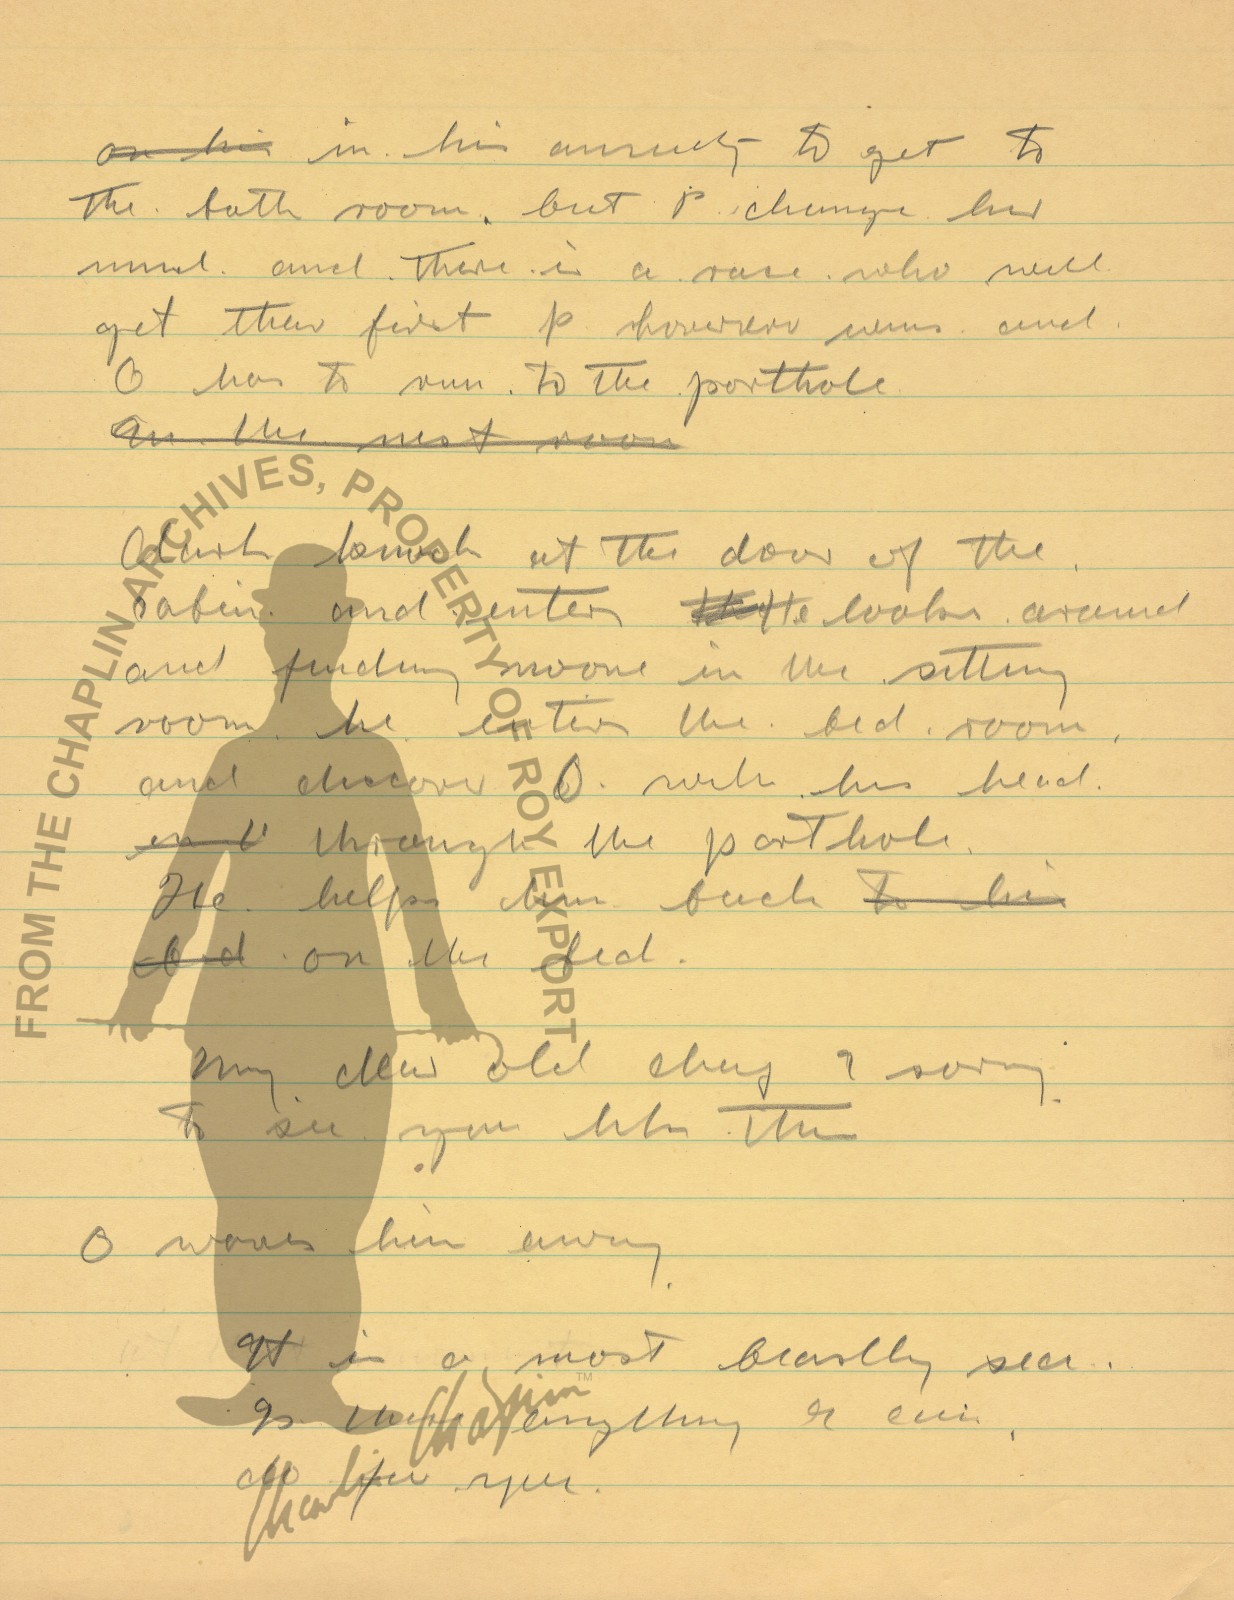 on his in his anxiety to get to
the bath room. but P. change his
mind. and there is a race who will
get their first P. however wins and
O has to run to the porthole
in the next room
Clark knock at the door of the
cabin and enters He looks around
and finding nooone in the sitting
room he enters the bed room,
and discover O. with his head.
in t through the porthole.
He helps him back to his
bed on the bed.
My dear old chap I sorry
to see you like this
O waves him away.
It is a most beastly sea.
Is there anything I can
do for you.
FROM THE CHAPLIN ARCHIVES, PROPERTY OF ROY EXPORT
Charlie Chaplin™